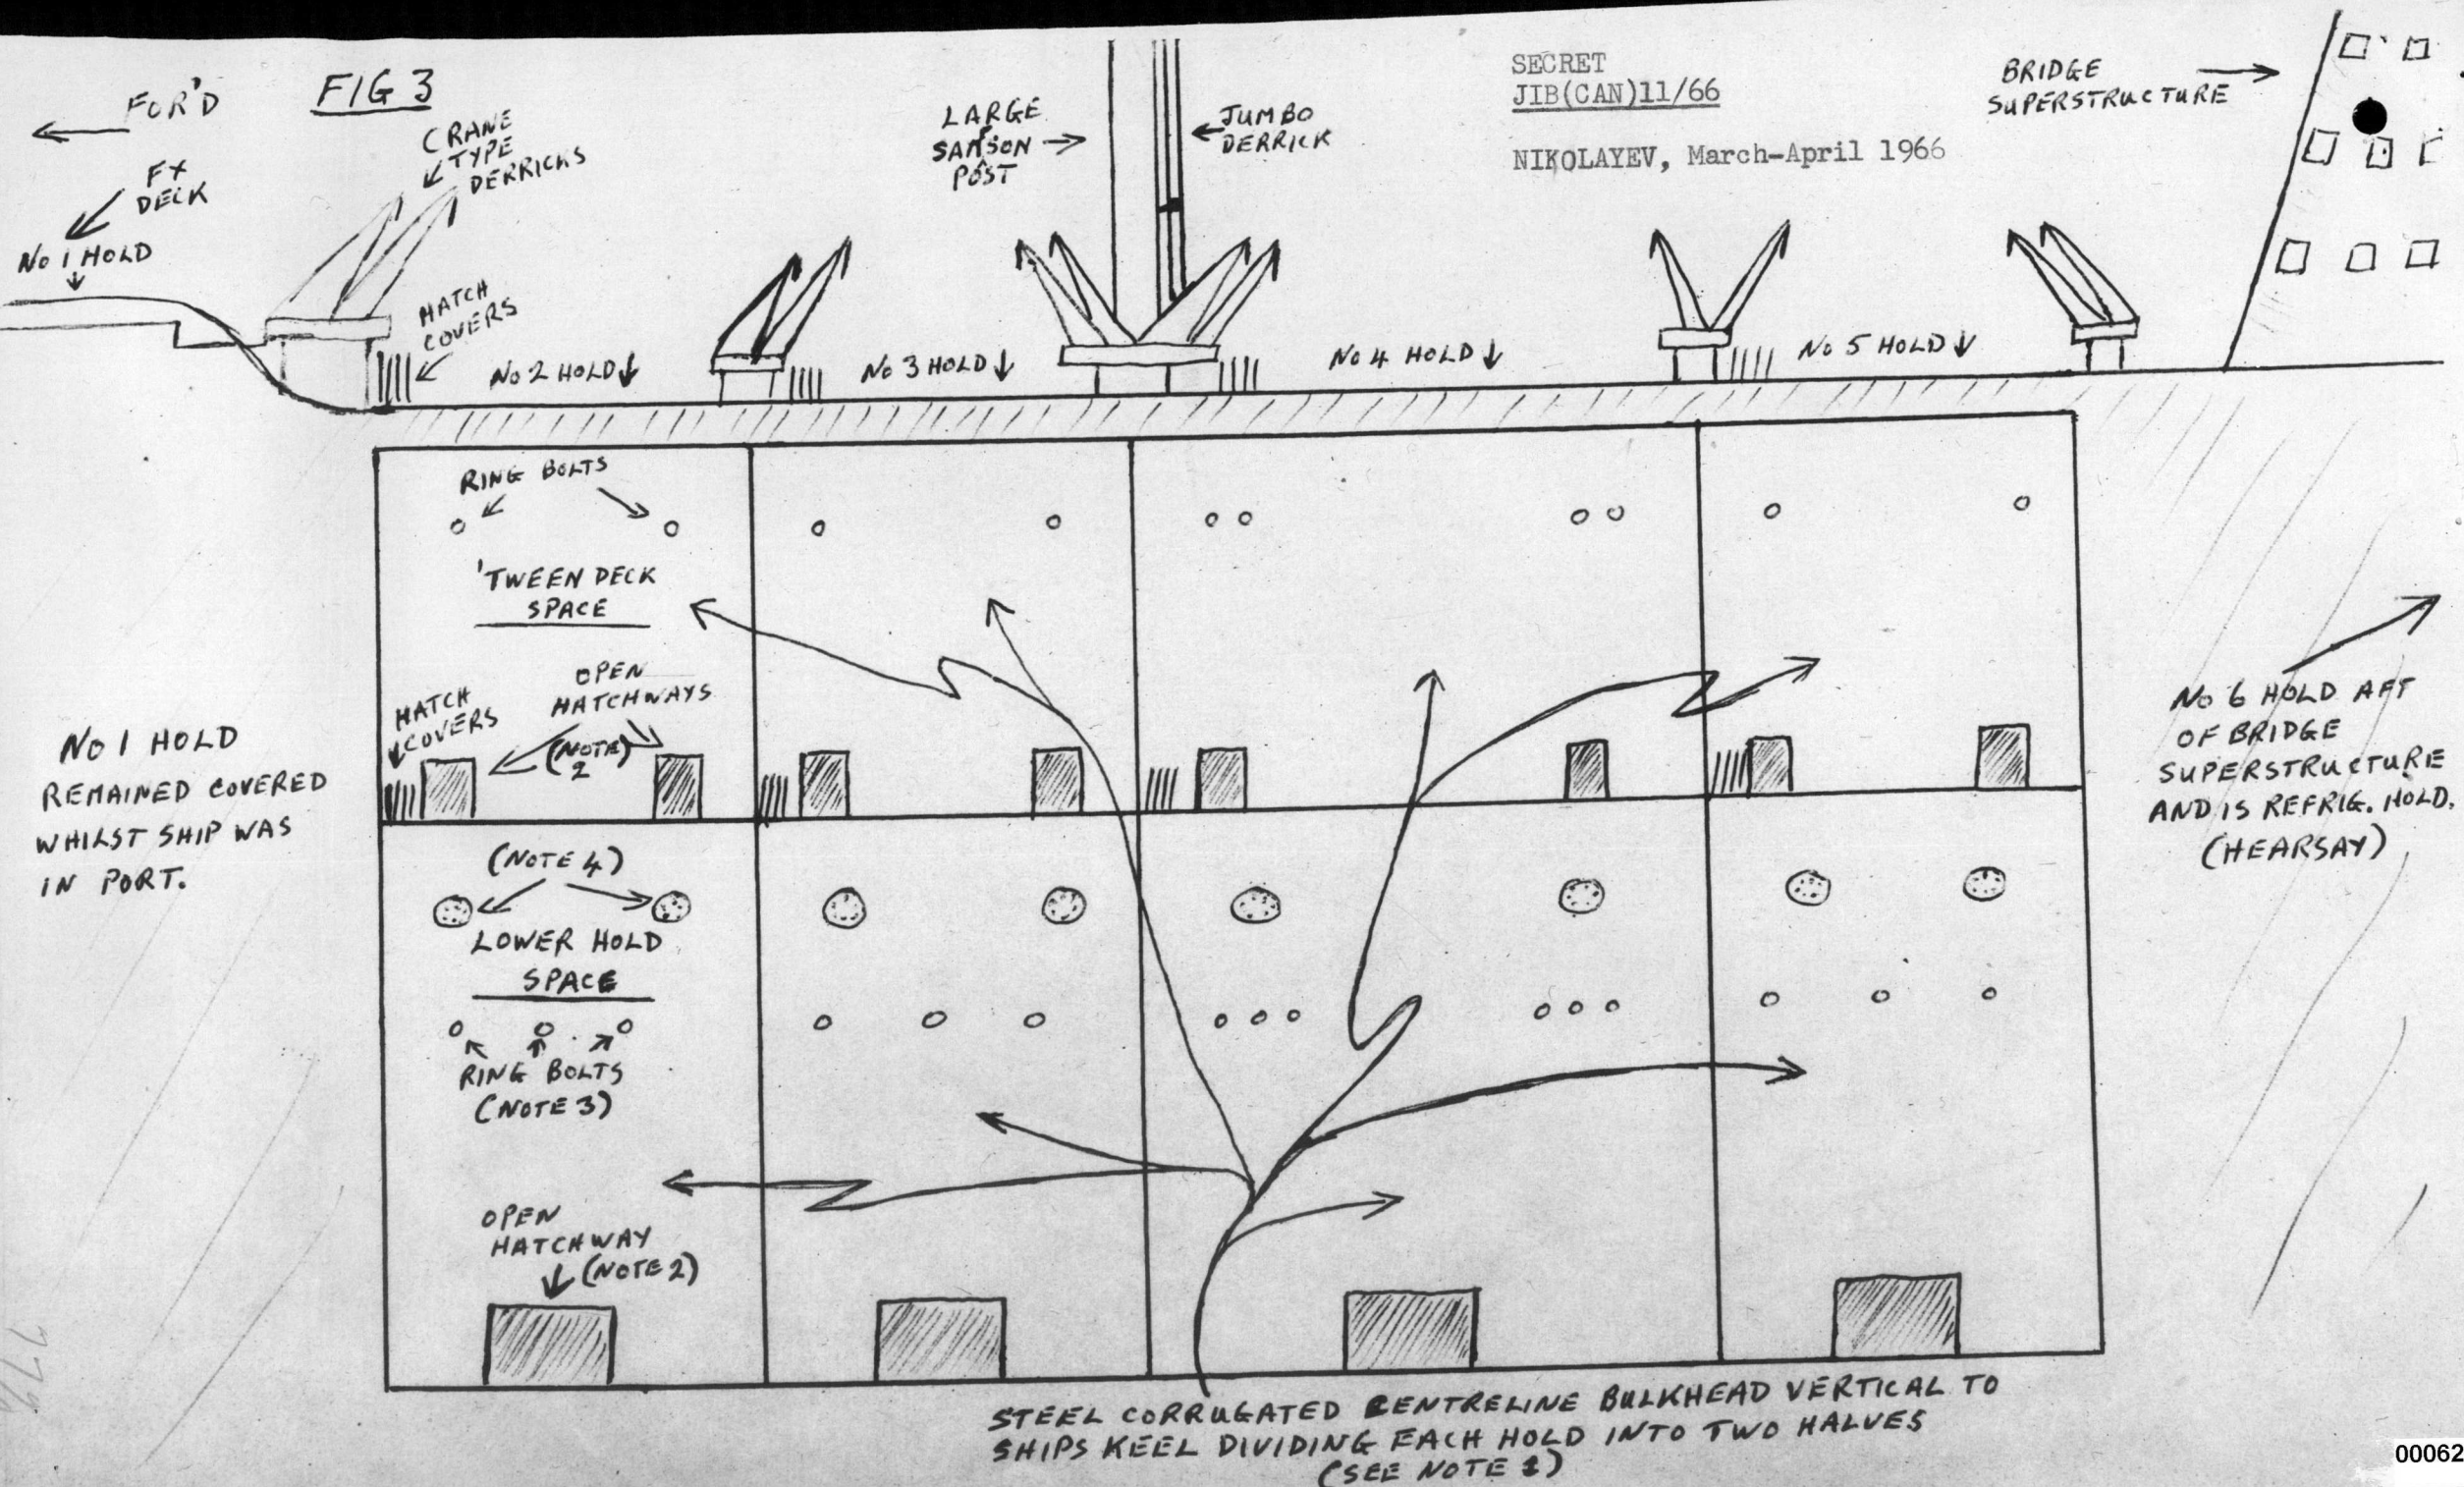 FOR'D
FIG 3
CRANE
TYPE
DERRICKS
FX
DECK
No 1 HOLD
HATCH
COVERS
LARGE
SAMSON
POST
JUMBO
DERRICK
SECRET
JIB(CAN)11/66
NIKOLAYEV, March-April 1966
BRIDGE
SUPERSTRUCTURE
No 2 HOLD
No 3 HOLD
No 4 HOLD
No 5 HOLD
RING BOLTS
'TWEEN DECK
SPACE
OPEN
HATCHWAYS
(NOTE)
2
HATCH
COVERS
No 1 HOLD
REMAINED COVERED
WHILST SHIP WAS
IN PORT.
(NOTE 4)
LOWER HOLD
SPACE
RING BOLTS
(NOTE 3)
OPEN
HATCHWAY
(NOTE 2)
No 6 HOLD AFT
OF BRIDGE
SUPERSTRUCTURE
AND IS REFRIG. HOLD.
(HEARSAY)
STEEL CORRUGATED CENTRELINE BULKHEAD VERTICAL TO
SHIPS KEEL DIVIDING EACH HOLD INTO TWO HALVES
(SEE NOTE 1)
00062